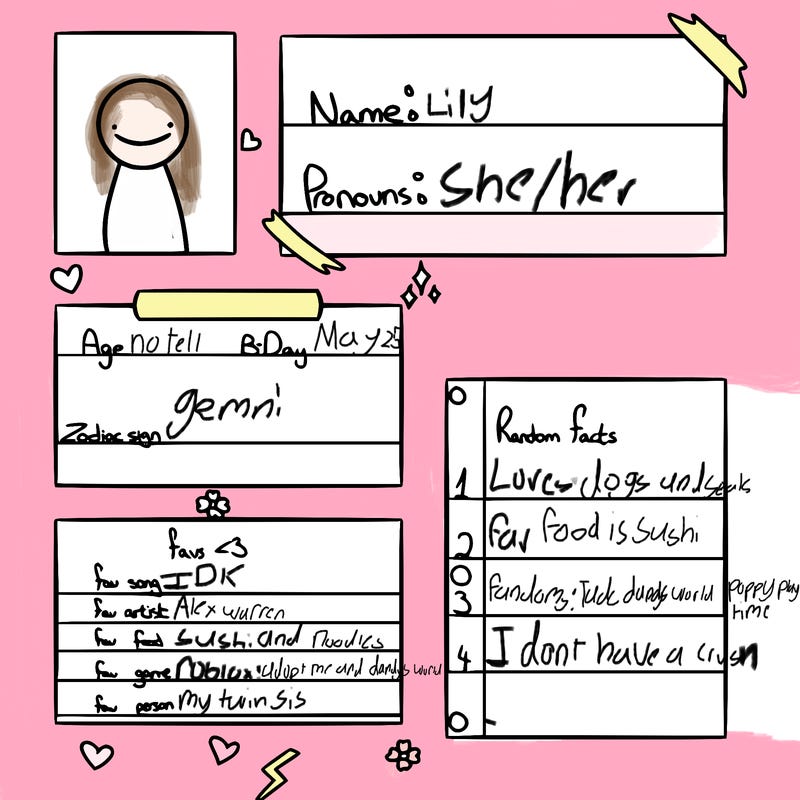 Name: Lily
Pronouns: She/her
Age no tell B-Day May 25
gemni
Zodiac sign
favs <3
fav song IDK
fav artist Alex warren
fav food sushi and noodles
fav game roblox: adopt me and dandys world
fav person my twin sis
Random facts
1 Loves dogs and seals
2 fav food is sushi
3 fandoms: dandys world poppy play
time
4 I dont have a crush